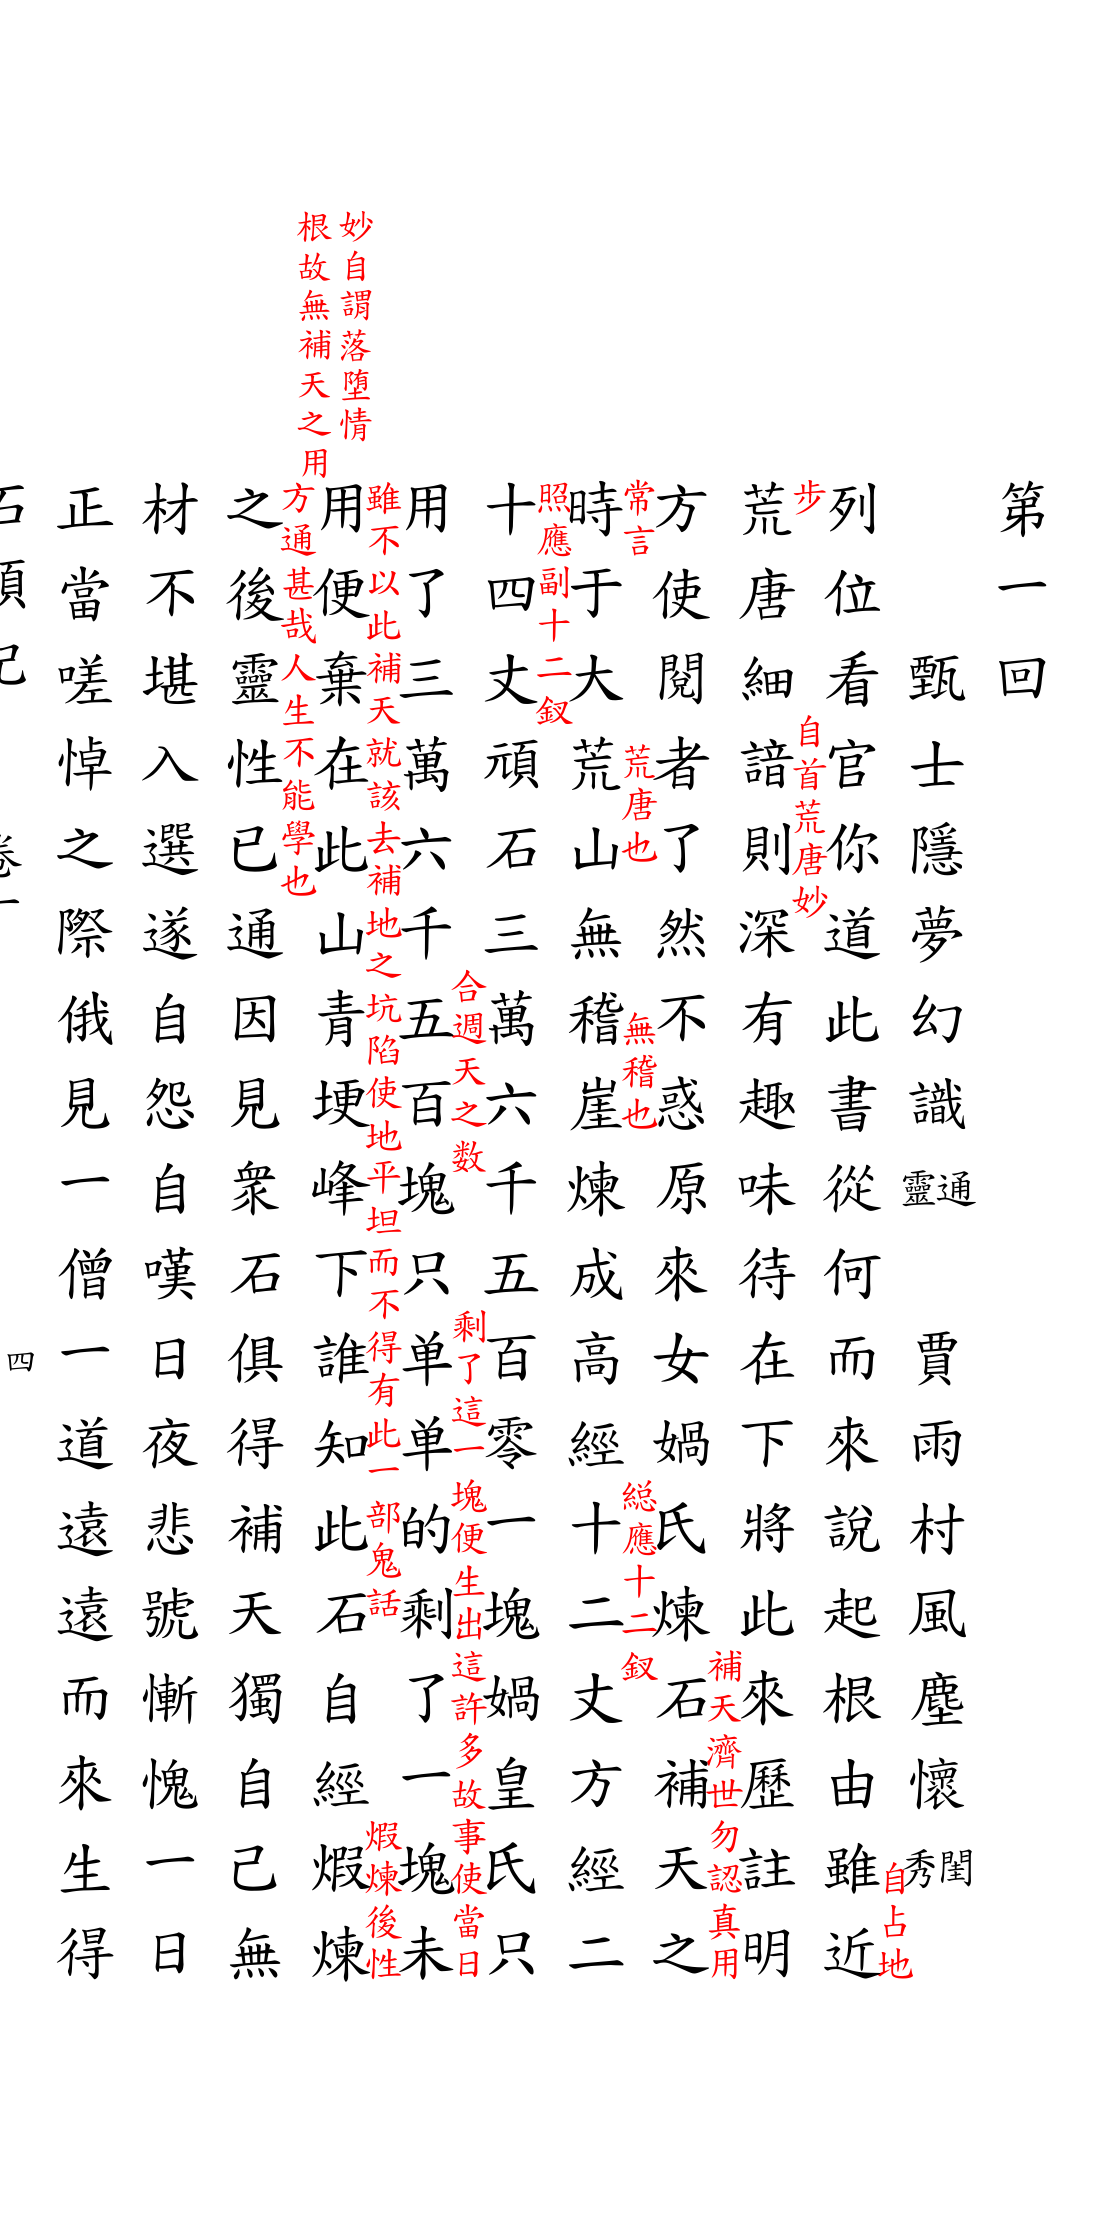 第一回
甄士隱夢幻識通靈　賈雨村風塵懷閨秀
自占地
列位看官你道此書從何而來說起根由雖近
步
自首荒唐妙
荒唐細諳則深有趣味待在下將此來歷註明
補天濟世勿認真用
方使閱者了然不惑原來女媧氏煉石補天之
常言
荒唐也
無稽也
総應十二釵
時于大荒山無稽崖煉成高經十二丈方經二
照應副十二釵
十四丈頑石三萬六千五百零一塊媧皇氏只
合週天之数
剩了這一塊便生出這許多故事使當日
用了三萬六千五百塊只单单的剩了一塊未
妙自謂落堕情
根故無補天之用
雖不以此補天就該去補地之坑陷使地平坦而不得有此一部鬼話
煆煉後性
用便棄在此山青埂峰下誰知此石自經煆煉
方通甚哉人生不能學也
之後靈性已通因見衆石俱得補天獨自己無
材不堪入選遂自怨自嘆日夜悲號慚愧一日
正當嗟悼之際俄見一僧一道遠遠而來生得
四